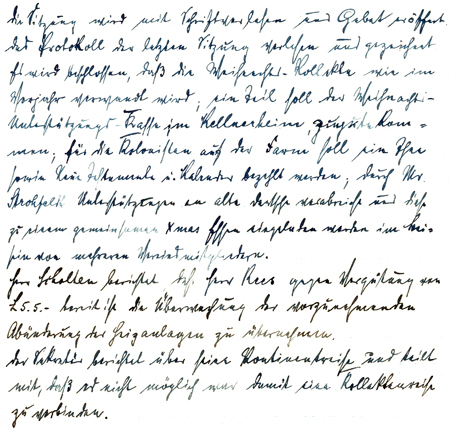 die Sitzung wird mit Schriftverlesen und Gebet eröffnet.
das Protokoll der letzten Sitzung verlesen und gezeichnet
Es wird beschlossen, daß die Weihnachts-Kollekte wie im
Vorjahr verwandt wird; ein Teil soll der Weihnachts-
Unterstützungs-Kasse im Kellnerheim zugute kom-
men; für die Kolonisten auf der Farm soll ein Thee
sowie Neue Testamente u. Kalender bezahlt werden; durch Mr.
Unterstützungen an alte Deutsche verabreicht und diese
zu einem gemeinsamen Xmas Essen eingeladen werden im Bei-
sein von mehreren Vorstandsmitgliedern.
Herr Scholten berichtet, daß Herr Rees gegen Vergütung von
£ 5.5.- bereit ist die Überwachung der vorzunehmenden
Abänderung der Heizanlagen zu übernehmen.
Der Sekretär berichtet über seine Kontinentreise und teilt
mit, daß es nicht möglich war damit eine Kollektenreise
zu verbinden.